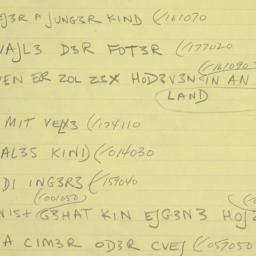 EJ3R A JUNG3R KIND (/161070
VAJL3 D3R FOT3R (/177020
(/161090
VEN ER ZOL Z3X HOD3V3N IN AN
LAND
MIT VELX3 (/174110
AL3S KIND (/014030
DI ING3R3 (/159040
(/001050)
NIST G3HAT KIN EJG3N3 HOJ
A CIM3R OD3R CVEJ (/059050